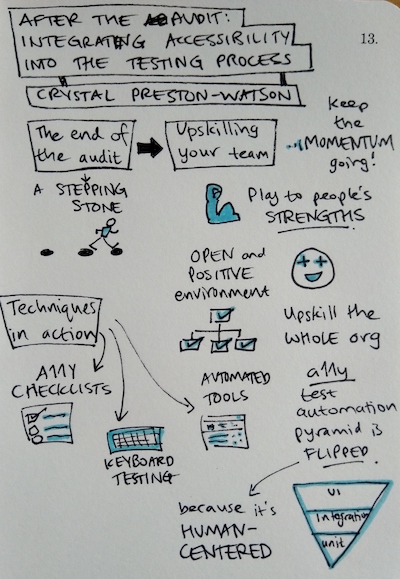 AFTER THE AUDIT:
INTEGRATING ACCESSIBILITY
INTO THE TESTING PROCESS
13.
CRYSTAL PRESTON-WATSON
The end of
the audit
Upskilling
your team
Keep
the
MOMENTUM
going!
A STEPPING
STONE
Play to people's
STRENGTHS
OPEN and
POSITIVE
environment
Upskill the
WHOLE org
Techniques
in action
A11Y
CHECKLISTS
KEYBOARD
TESTING
AUTOMATED
TOOLS
a11y
test
automation
pyramid is
FLIPPED
because it's
HUMAN-
CENTERED
UI
integration
unit